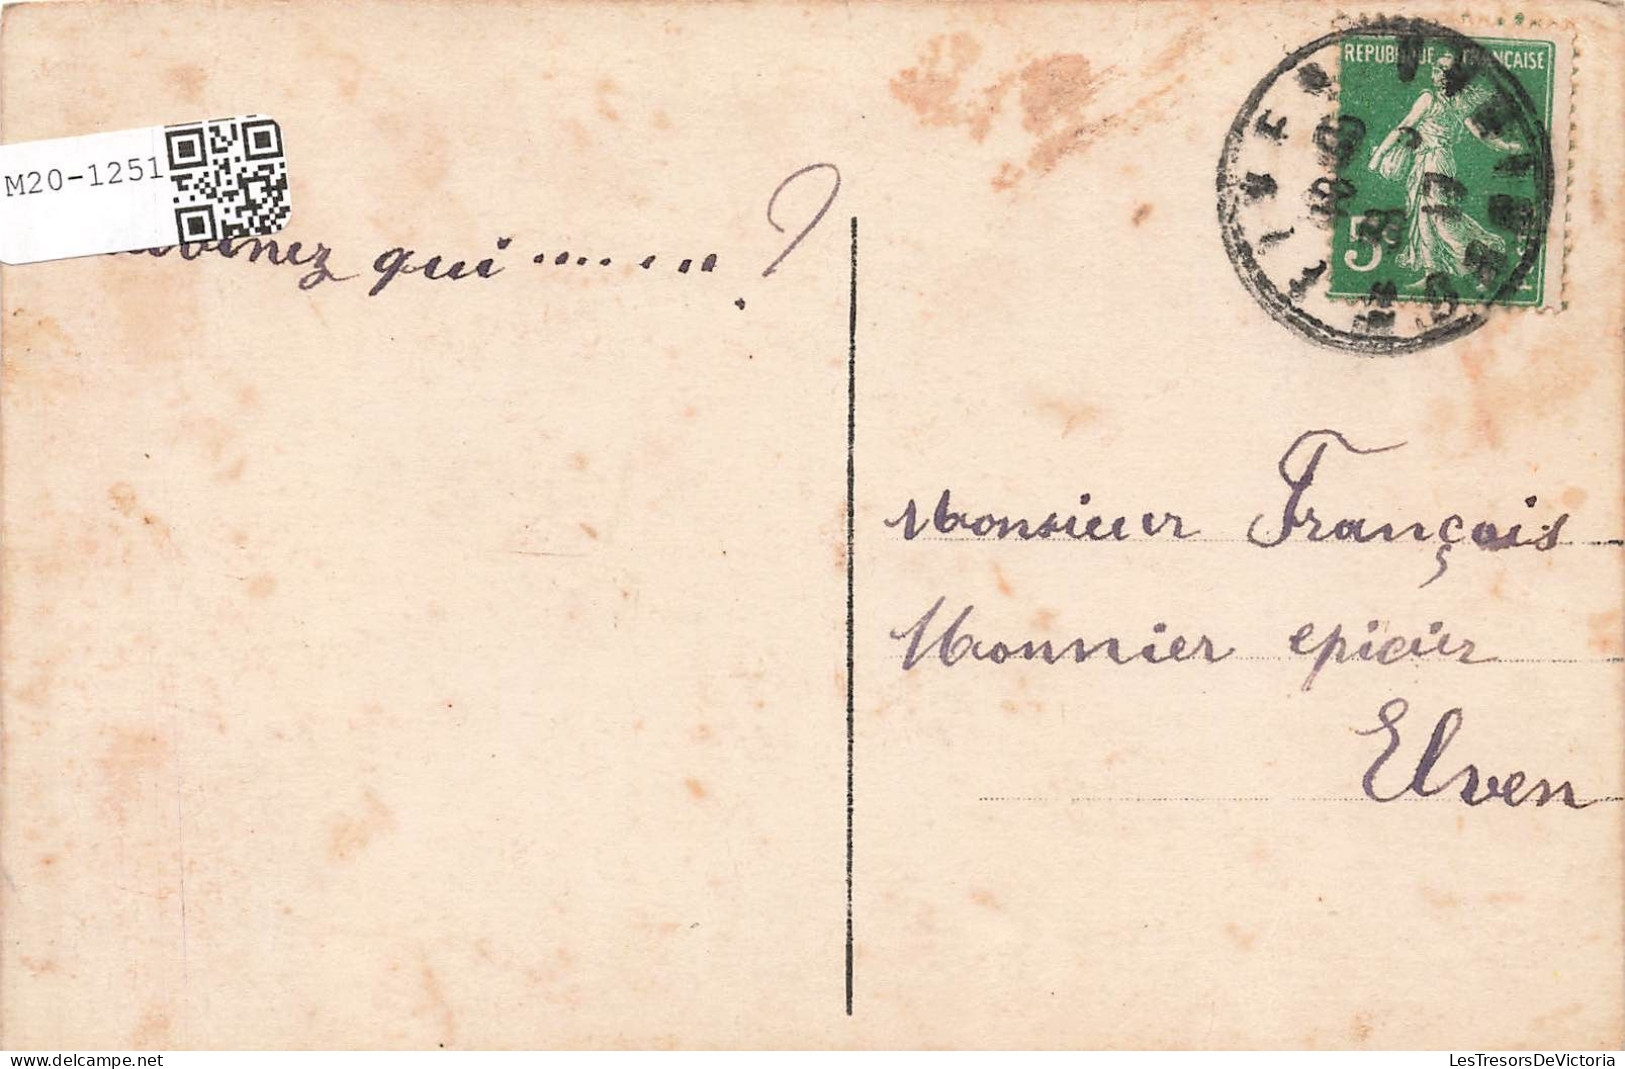 M20-1251
qui .........?
REPUBLIQUE FRANÇAISE
5
Monsieur François
Monnier epicier
Elven
LesTresorsDeVictoria